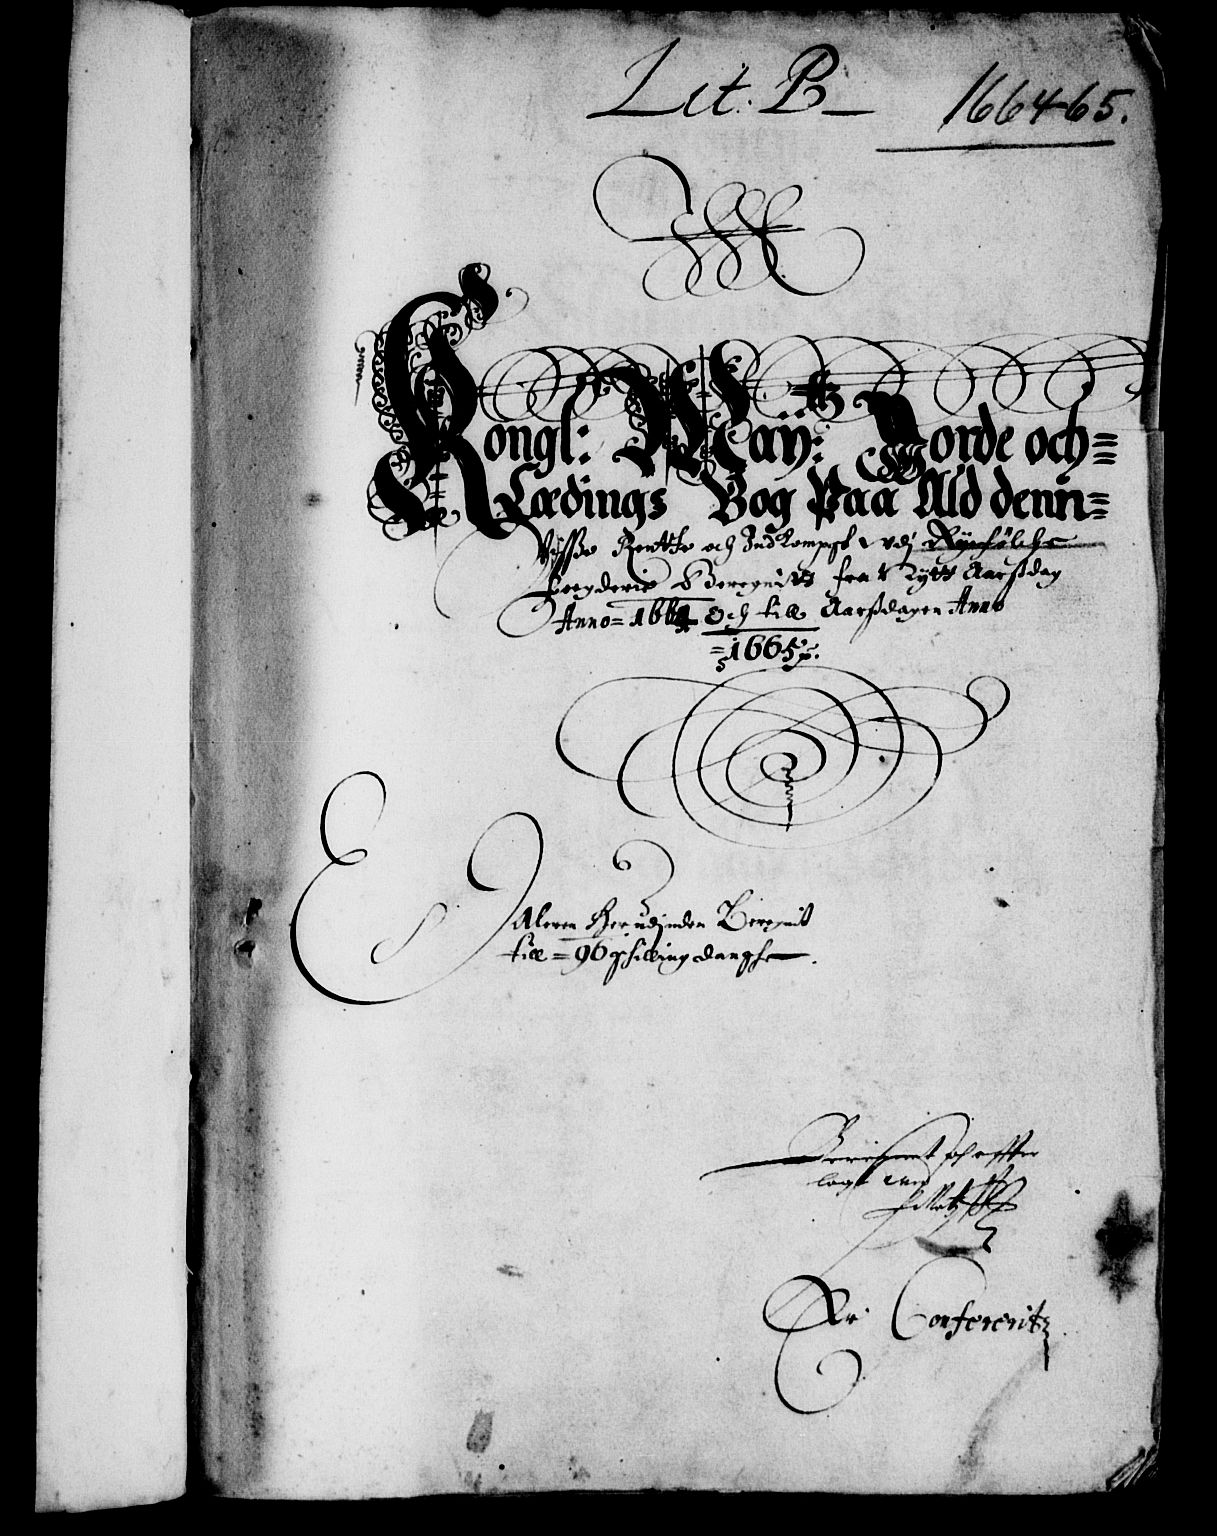 Lit. B
1664-65.
Kongl: Maÿ:tz Jorde och=
Lædings Bog Paa Ald denn=
Visse Rentte och Indkompst udj Ryefölche
Fogderie Beregnitt fra Nytt Aarsdag
Anno=1664 Och till Aarsdagen Anno
=1665.
Daleren Herudjnden Beregnit
till=96 schilling danshe.
lagt
Er Confererit